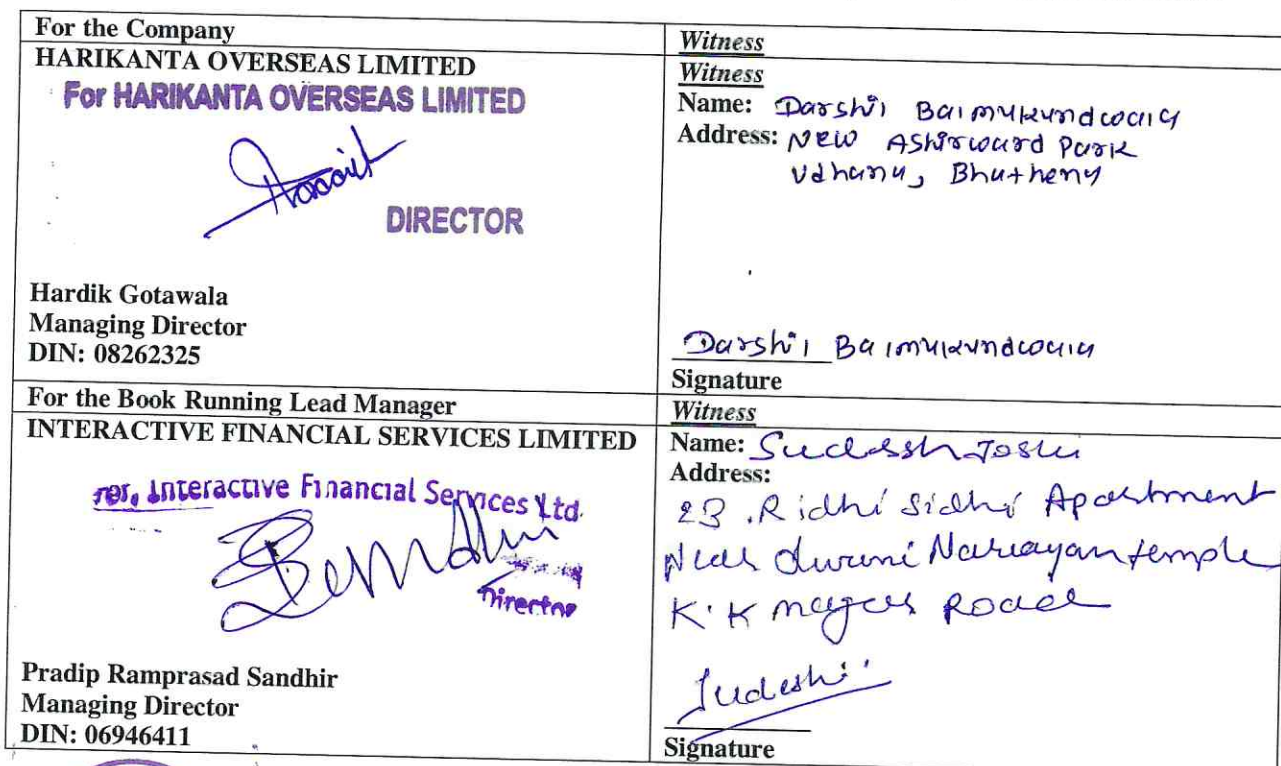 For the Company
HARIKANTA OVERSEAS LIMITED
For HARIKANTA OVERSEAS LIMITED
DIRECTOR
Hardik Gotawala
Managing Director
DIN: 08262325
Witness
Witness
Name: Darshi Balmukundwala
Address: New Ashirward Park
Udhana, Bhatheny
Darshi Balmukundwala
Signature
For the Book Running Lead Manager
INTERACTIVE FINANCIAL SERVICES LIMITED
For, Interactive Financial Services Ltd.
Director
Pradip Ramprasad Sandhir
Managing Director
DIN: 06946411
Witness
Name: Sudesh Joshi
Address:
23, Ridhi Sidhi Apartment
Near Narayan temple
K.K nagar Road
Signature